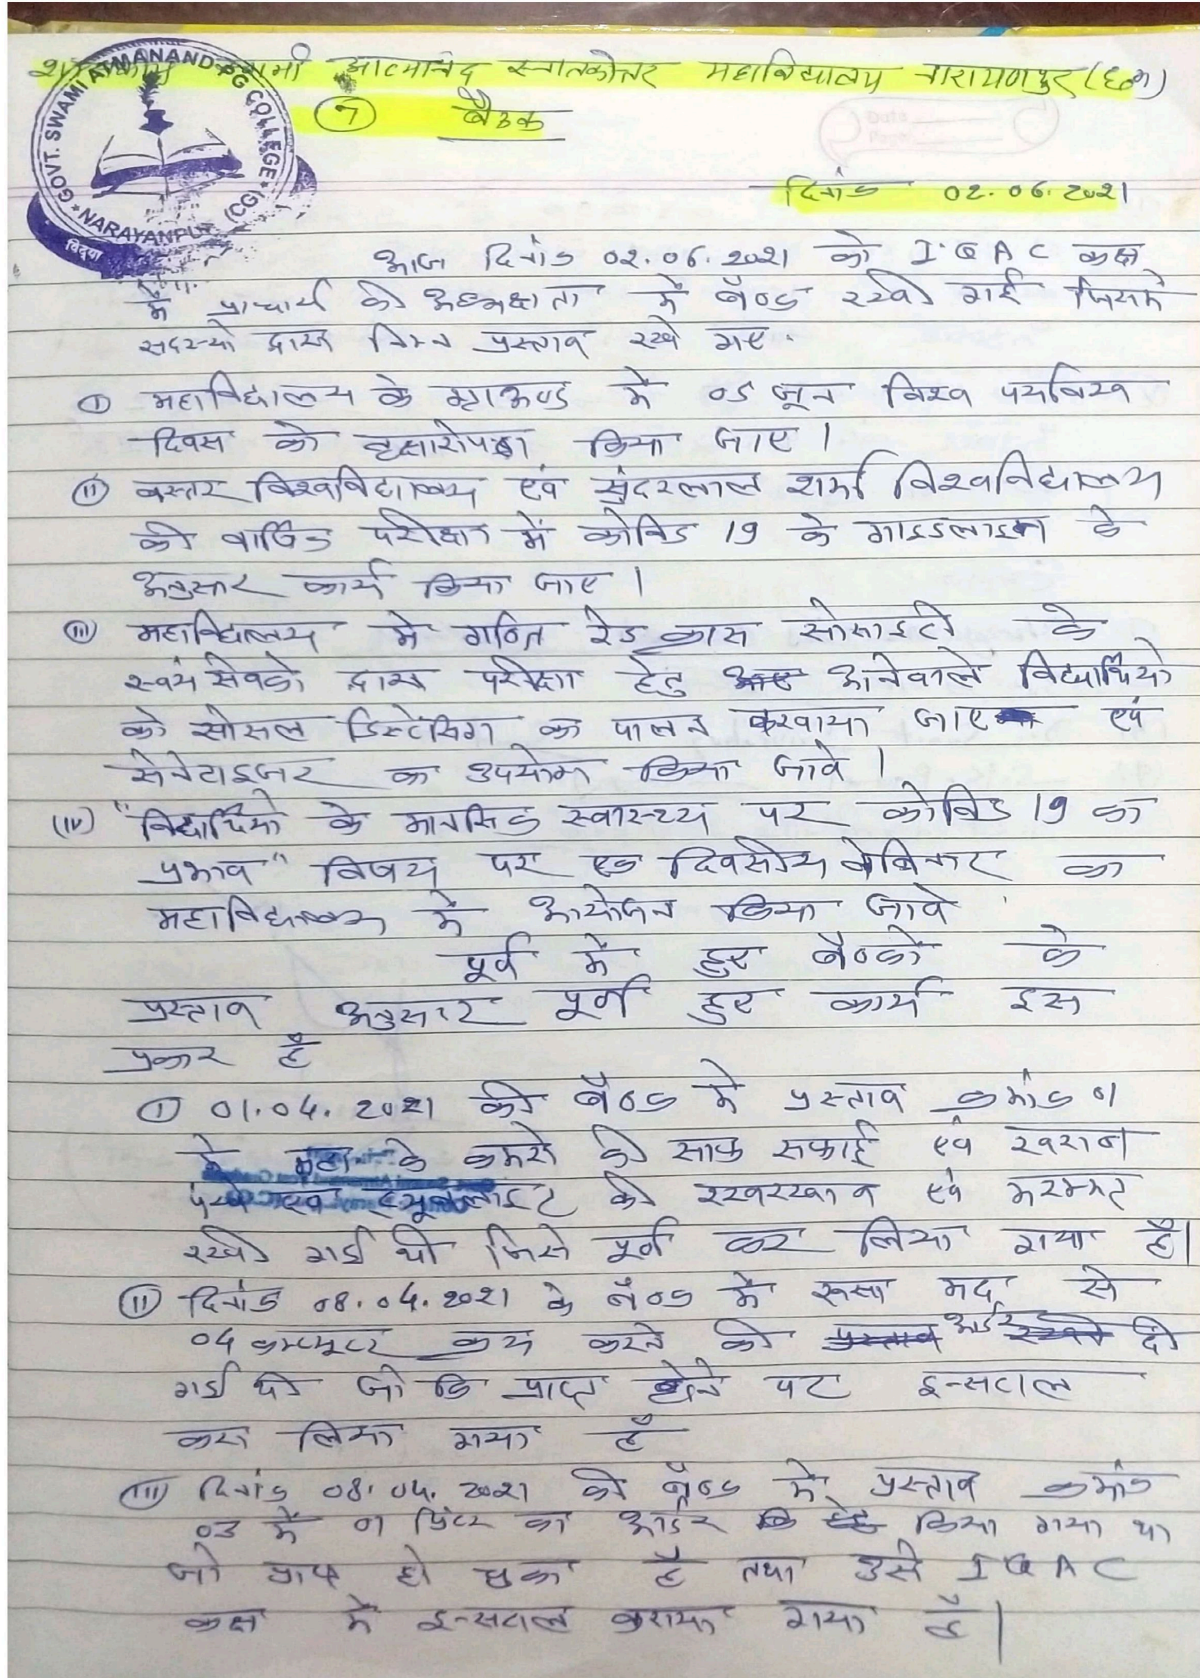 स्वामी आत्मानंद स्नातकोत्तर महाविद्यालय नारायणपुर (छ.ग.)
GOVT. SWAMI ATMANAND PG COLLEGE
NARAYANPUR (CG)
विद्या
7 बैठक
दिनांक 02.06.2021
आज दिनांक 02.06.2021 को IQAC कक्ष
में प्राचार्य की अध्यक्षता में बैठक रखी गई जिसमें
सदस्यो द्वारा निम्न प्रस्ताव रखे गए.
(I) महाविद्यालय के ग्राऊण्ड में 05 जून विश्व पर्यावरण
दिवस को वृक्षारोपण किया जाए।
(II) बस्तर विश्वविद्यालय एवं सुंदरलाल शर्मा विश्वविद्यालय
की वार्षिक परीक्षा में कोविड 19 के गाइडलाइन के
अनुसार कार्य किया जाए।
(III) महाविद्यालय में गठित रेड क्रास सोसाइटी के
स्वयं सेवको द्वारा परीक्षा हेतु आनेवाले विद्यार्थियो
को सोसल डिस्टेंसिंग का पालन करवाया जाए एवं
सेनेटाइजर का उपयोग किया जावे।
(IV) "विद्यार्थियो के मानसिक स्वास्थ्य पर कोविड 19 का
प्रभाव" विषय पर एक दिवसीय वेबिनार का
महाविद्यालय में आयोजन किया जावे
पूर्व में हुए बैठको के
प्रस्ताव अनुसार पूर्ण हुए कार्य इस
प्रकार है
(I) 01.04.2021 की बैठक में प्रस्ताव क्रमांक 01
में महा. के कमरो की साफ सफाई एवं खराब
पंखे एवं ट्यूबलाइट की रखरखाव एवं मरम्मत
रखी गई थी जिसे पूर्ण कर लिया गया है।
(II) दिनांक 08.04.2021 के बैठक में रूसा मद से
04 कम्प्यूटर क्रय करने की आर्डर दी
गई थी जो कि प्राप्त होने पर इन्सटाल
करा लिया गया है
(III) दिनांक 08.04.2021 की बैठक में प्रस्ताव क्रमांक
03 में 01 प्रिंटर का आर्डर किया गया था
जो प्राप्त हो चुका है तथा उसे IQAC
कक्ष में इन्सटाल कराया गया है।